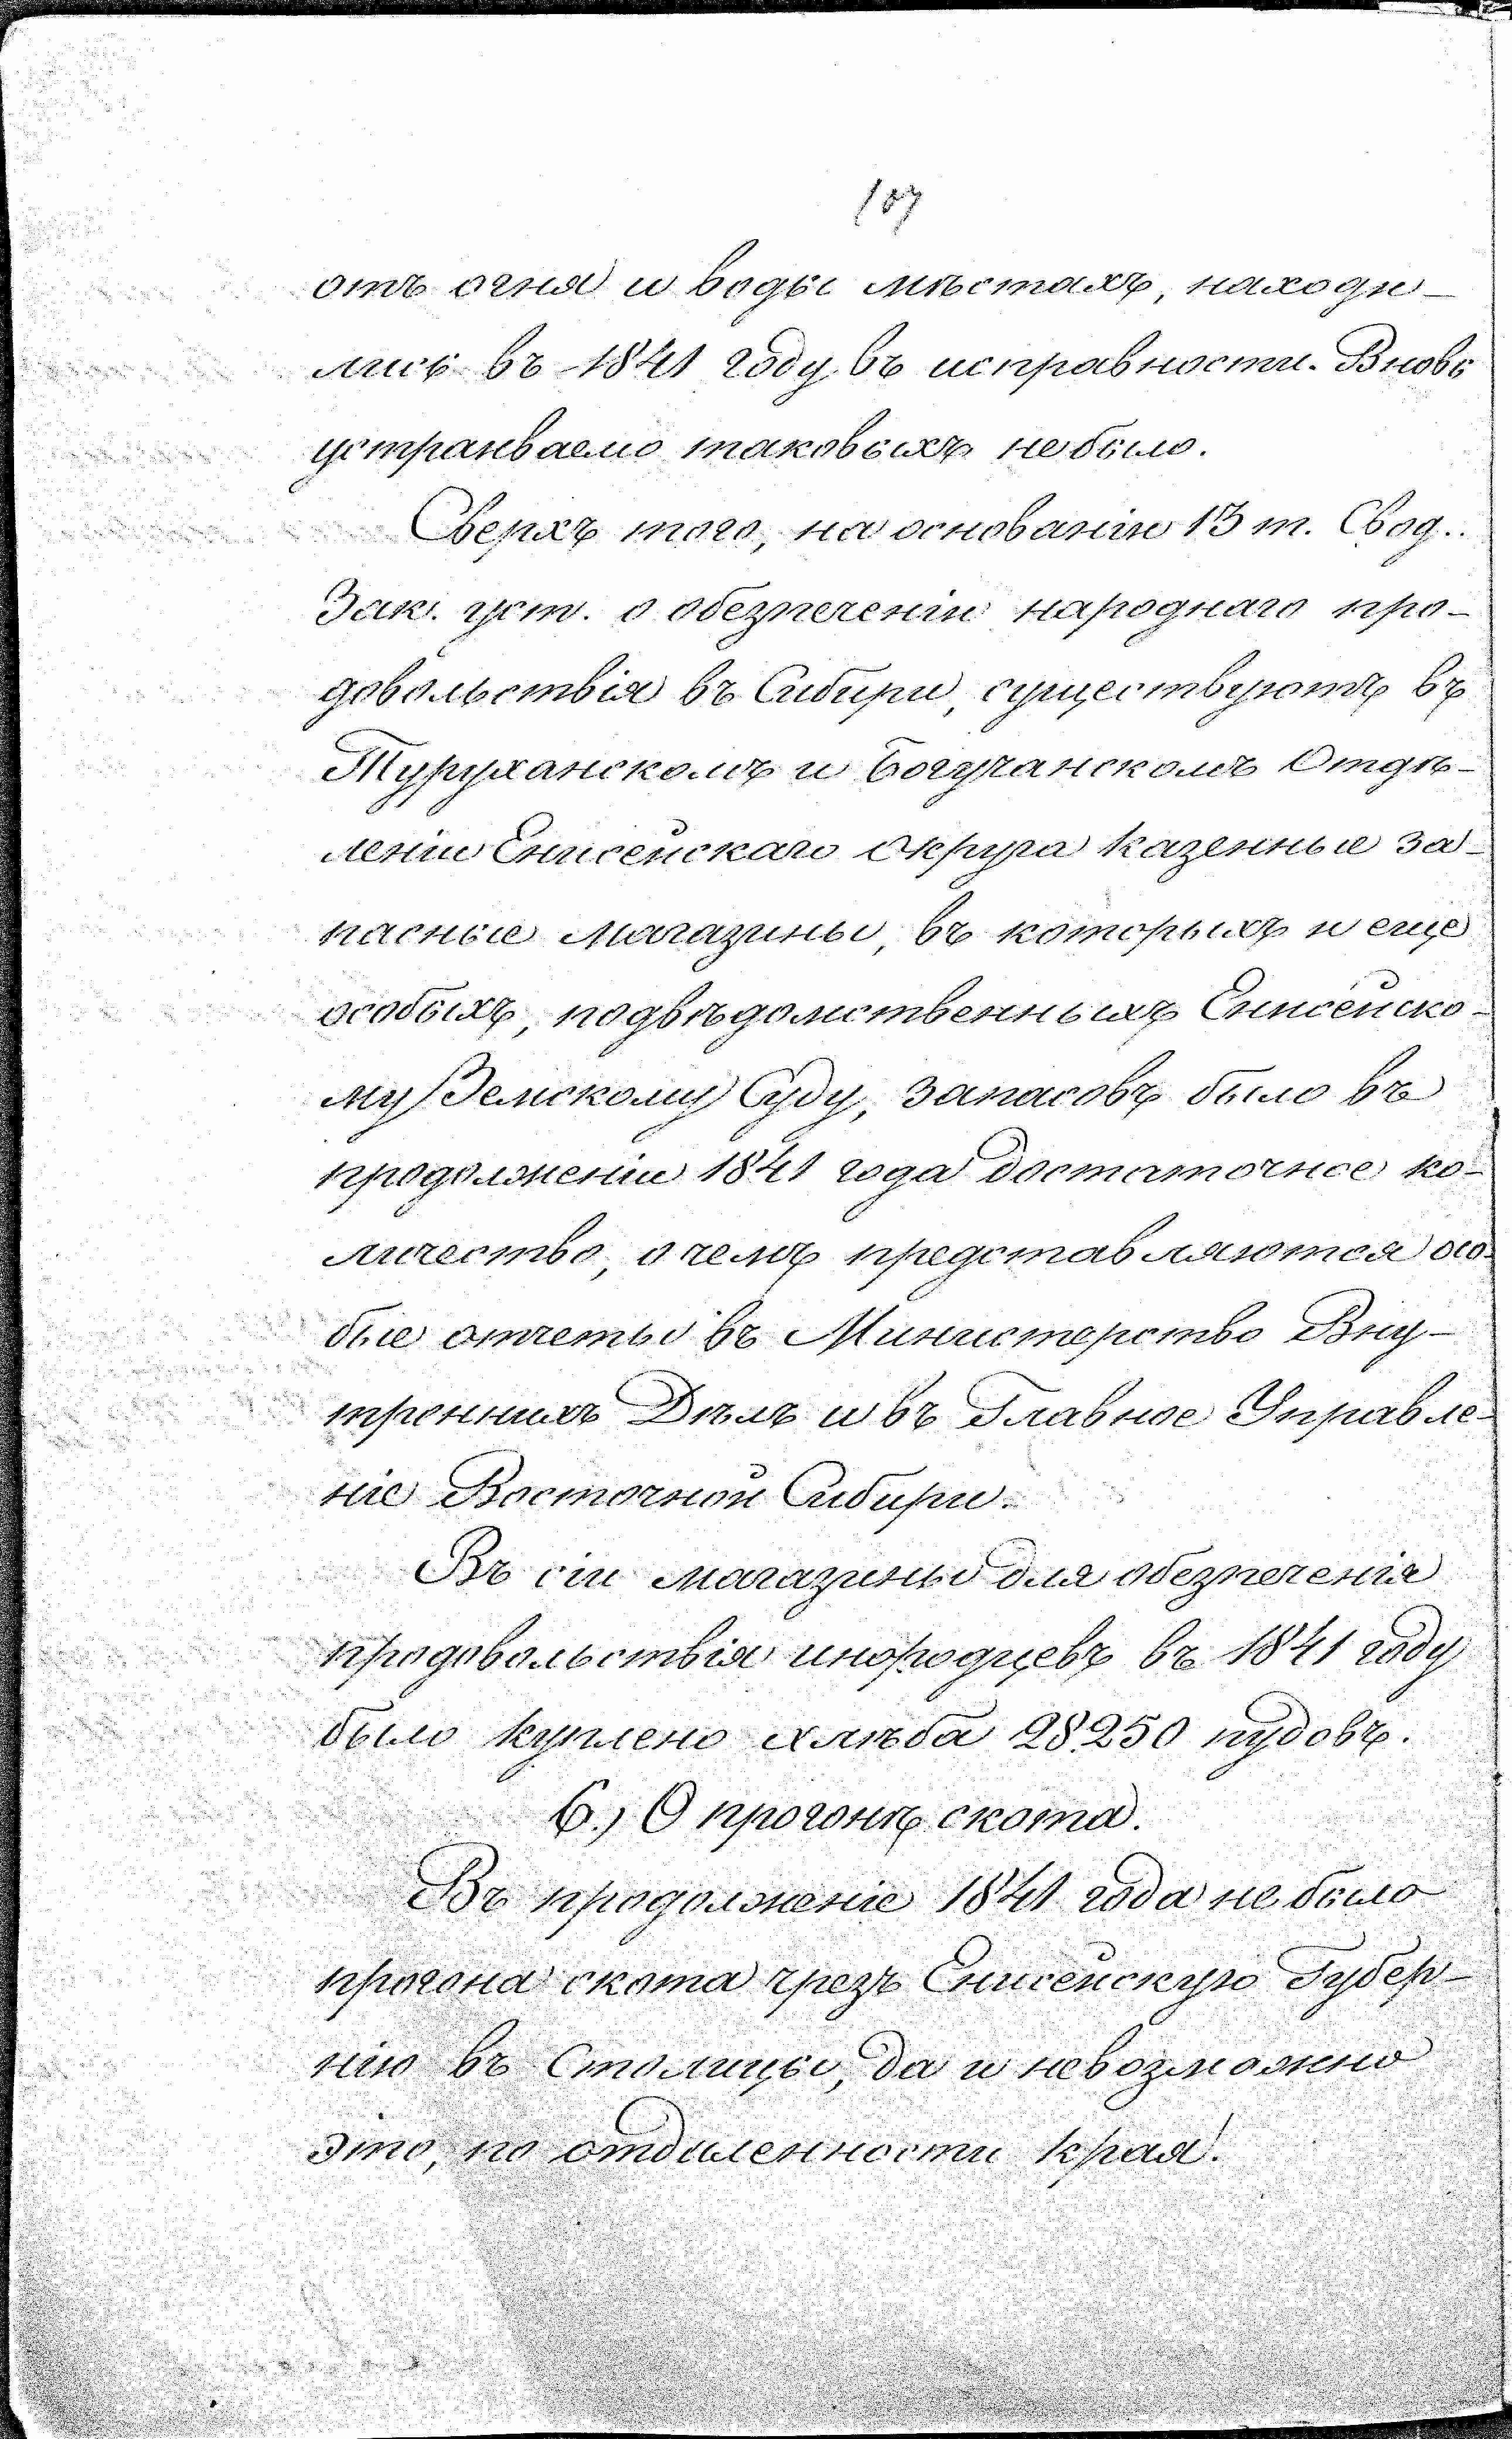 107
отъ огня и воды мѣстахъ, находи-
лись въ 1841 году въ исправности. Вновь
устраиваемо таковыхъ небыло.
Сверхъ того, на основаніи 13 т. Свод..
Зак. уст. о обезпеченіи народнаго про-
довольствія въ Сибири, существуютъ въ
Туруханскомъ и Богучанскомъ Отдѣ-
леніи Енисейскаго Округа казенные за-
пасные магазины, въ которыхъ и еще
особыхъ, подвѣдомственныхъ Енисейско-
му Земскому Суду, запасовъ было въ
продолженіи 1841 года достаточное ко-
личество, о чемъ представляются осо-
бые отчеты въ Министерство Вну-
треннихъ Дѣлъ и въ Главное Управле-
ніе Восточной Сибири.
Въ сіи магазины для обезпеченія
продовольствія инородцевъ въ 1841 году
было куплено хлѣба 28.250 пудовъ.
6.) О прогонѣ скота.
Въ продолженіе 1841 года не было
прогона скота чрезъ Енисейскую Губер-
нію въ Столицы, да и невозможно
это, по отдаленности края.